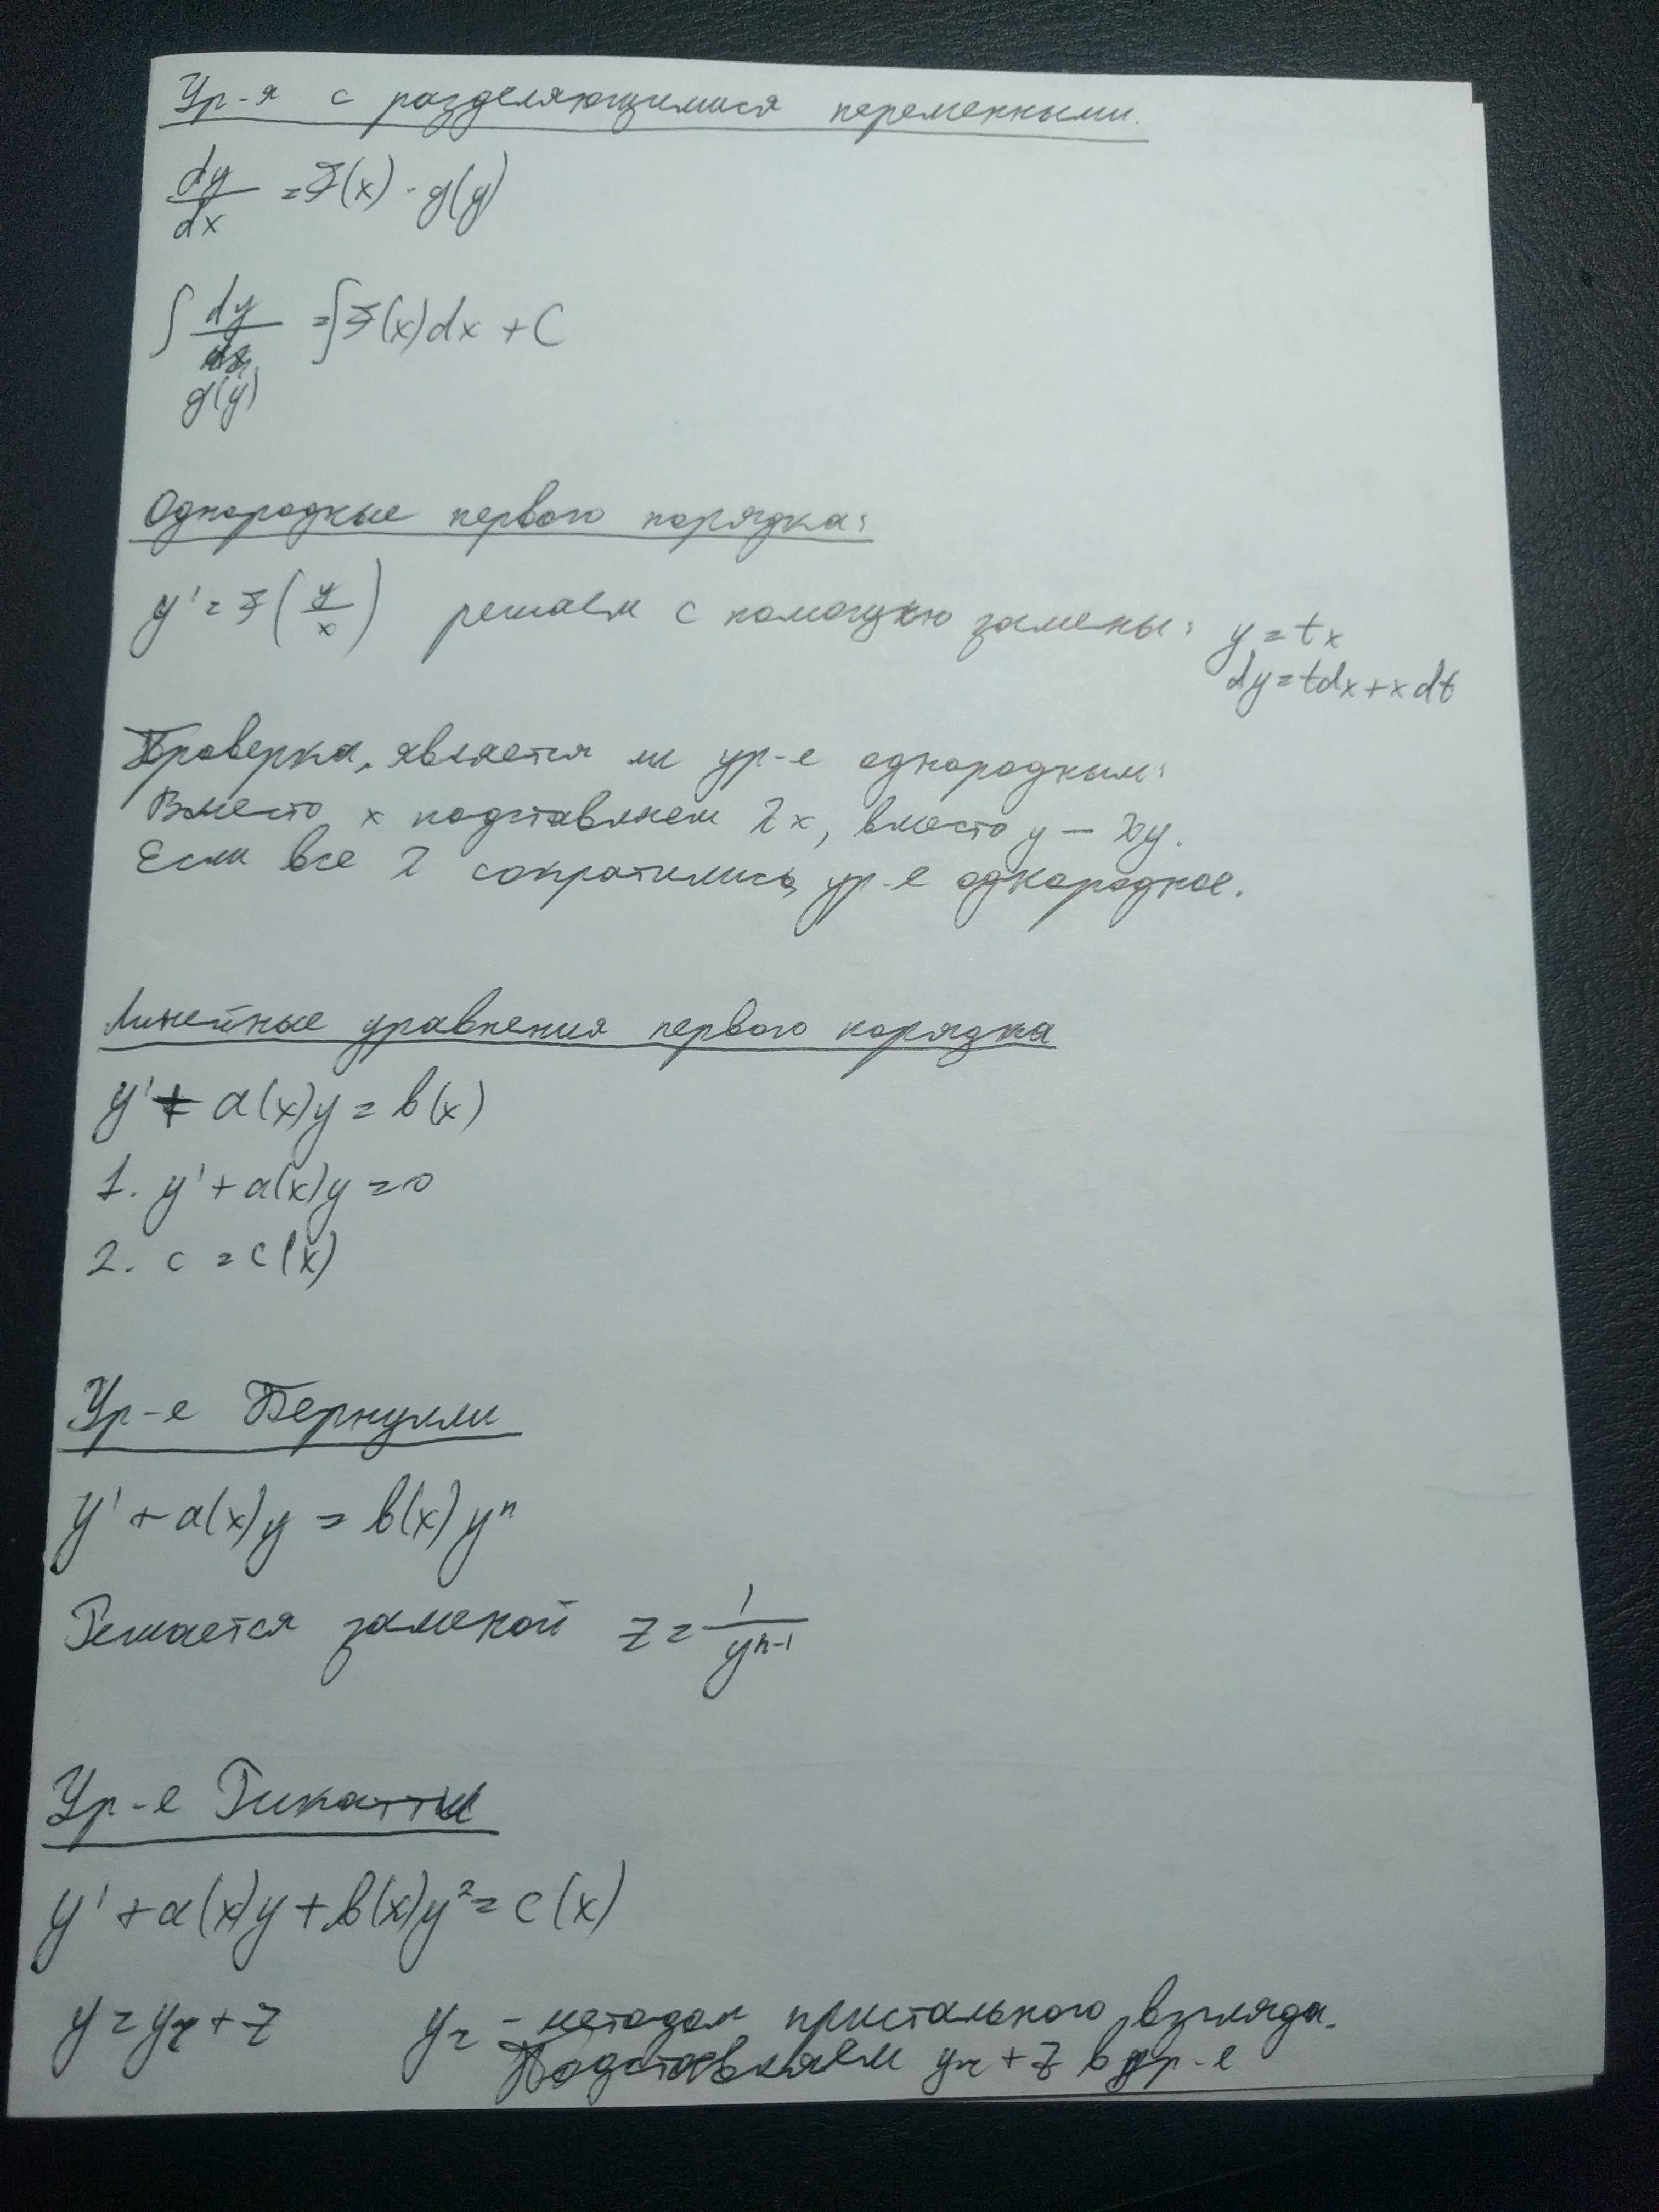 Ур-я с разделяющимися переменными.
dy/dx = f(x) · g(y)
∫ dy/g(y) = ∫ f(x)dx + C
Однородные первого порядка:
y' = f(y/x) решаем с помощью замены: y = tx
dy = tdx + xdt
Проверка, является ли ур-е однородным:
Вместо x подставляем λx, вместо y — λy.
Если все λ сократились, ур-е однородное.
Линейные уравнения первого порядка
y' + a(x)y = b(x)
1. y' + a(x)y = 0
2. c = c(x)
Ур-е Бернулли
y' + a(x)y = b(x)yⁿ
Решается заменой z = 1/yⁿ⁻¹
Ур-е Рикатти
y' + a(x)y + b(x)y² = c(x)
y = yч + z yч - методом пристального взгляда.
Подставляем yч + z в ур-е